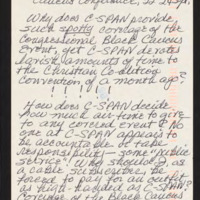 Caucus Conference, 22-24 Sept.
Why does C-SPAN provide
such spotty coverage of the
Congressional Black Caucus
Event, yet C-SPAN devotes
lavish amounts of time to
the Christian Coalition
Convention of a month ago?
How does C-SPAN decide
how much air time to give
to any covered event? No
one at C-SPAN appears to
be accountable or take
responsibility - some "public
service". Why should I, as
a cable subscriber, be
forced to pay for an outfit
as high-handed as C-SPAN?
Coverage of the Black Caucus